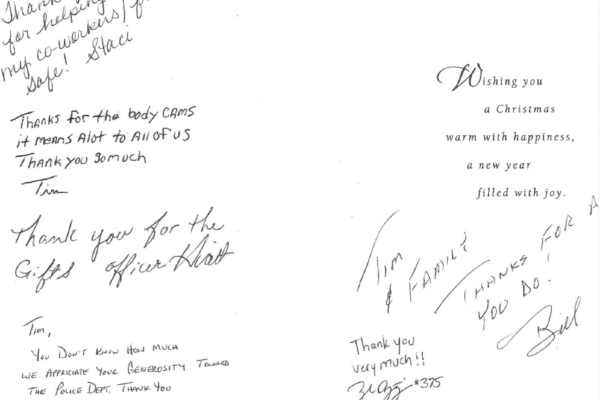 Thank
for helping
my co-workers/
safe! Staci
Thanks for the body CAMS
it means Alot to All of us
Thank you so much
Tim
Thank you for the
Gifts officer
Tim,
You Don't Know How Much
we Appriciate Your Generosity Toward
The Police Dept. Thank You
Wishing you
a Christmas
warm with happiness,
a new year
filled with joy.
Tim
& Family
Thanks for A
You Do!
Bill
Thank you
very much!!
#375